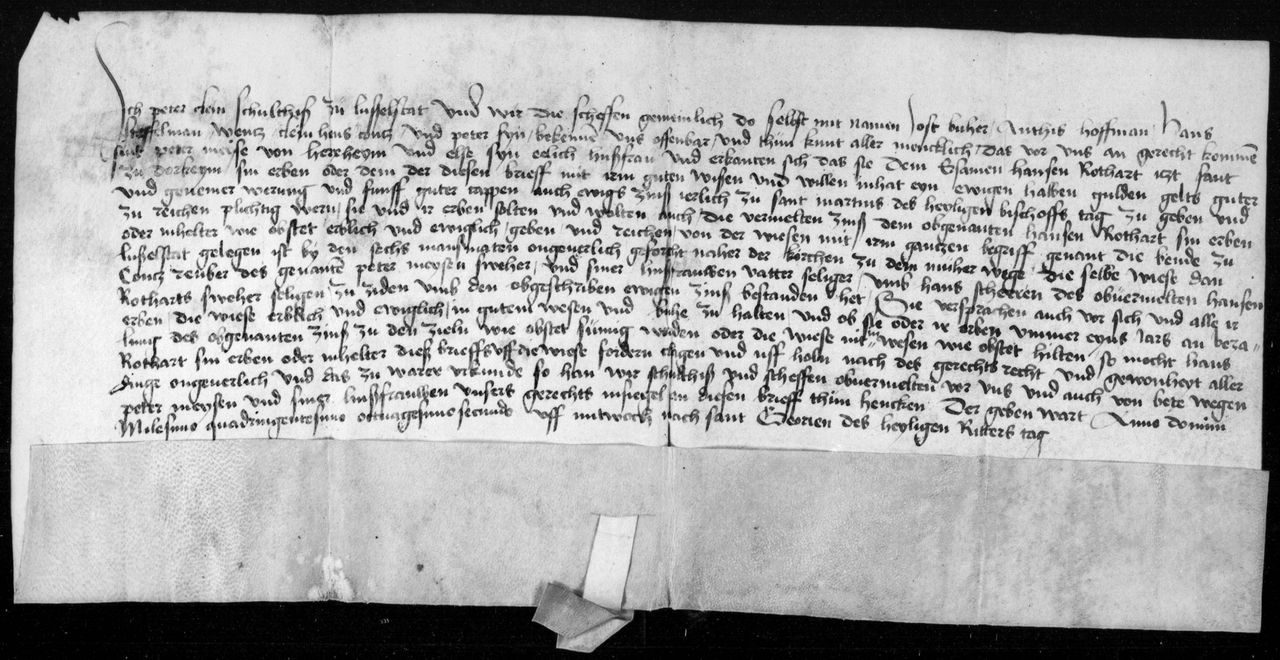 Ich peter clem schulthiß zu lusselstat vnd wir die scheffen gemeinlich do selbst mit namen Jost buher, Anthis hoffman, Hans
Steffelman, wentz, clein hens contz, vnd peter syn, bekenne vns offenbar, vnd thun kunt aller menclich, das vor vns an gerecht kommen
sint peter meyse von herxheym vnd else syn elich hußfrau vnd erkanten sich das sie dem Ersamen hansen Rothart itzt faut
zu dorheym, sin erben oder dem der diesen brieff mit irm guten wisen vnd willen inhat eyn ewigen halben gulden gelts guter
vnd genemer werung vnd funff guter cappen auch ewigs zinß ierlich zu sant martins des heyligen bischoffs tag zu geben vnd
zu reichen plichtig wern, sie vnd ir erben solten vnd wolten auch die vermelten zinß dem obgenanten hansen Rothart sin erben
oder inhelter wie obstet erblich vnd ewiglich geben vnd reichen von der wiesen mit irm gantzen begriff genant die bende zu
lusselstat gelegen ist by den sechs mansmaten ongeuerlich geforcht naher der kirchen zu dem muher wege, die selbe wiese dan
Contz reuber des genante peter meysen sweher, vnd siner hußfrauwen vatter seliger, vmb hans scherren des obuermelten hansen
Rotharts sweher seligen, zu ziden vmb den obgeschriben ewigen zinß bestanden het, Sie versprachen auch vor sich vnd alle ir
erben die wiese erblich vnd ewiglich in gutem wesen vnd buhe zu halten vnd ob sie oder ir erben vmmer eyns iars an beza-
lung des obgenanten zinß zu den zieln wie obstet sumig wurden oder die wiese nit im wesen wie obstet hilten, so mocht hans
Rothart sin erben oder inhelter dieß brieffs vff die wiese fordern clagen vnd vff holn nach des gerechts recht vnd gewonheyt aller
dinge ongeuerlich vnd das zu warer vrkunde so han wir schultheiß vnd scheffen obuermelten vor vns vnd auch von bete wegen
peter meysen vnd siner hußfrauwen vnsers gerechts insiegel an diesen brieff thun hencken Der geben wart Anno domini
Milesimo quadringentesimo octuagesimo secundo vff mitwoch nach sant Georien des heyligen Ritters tag